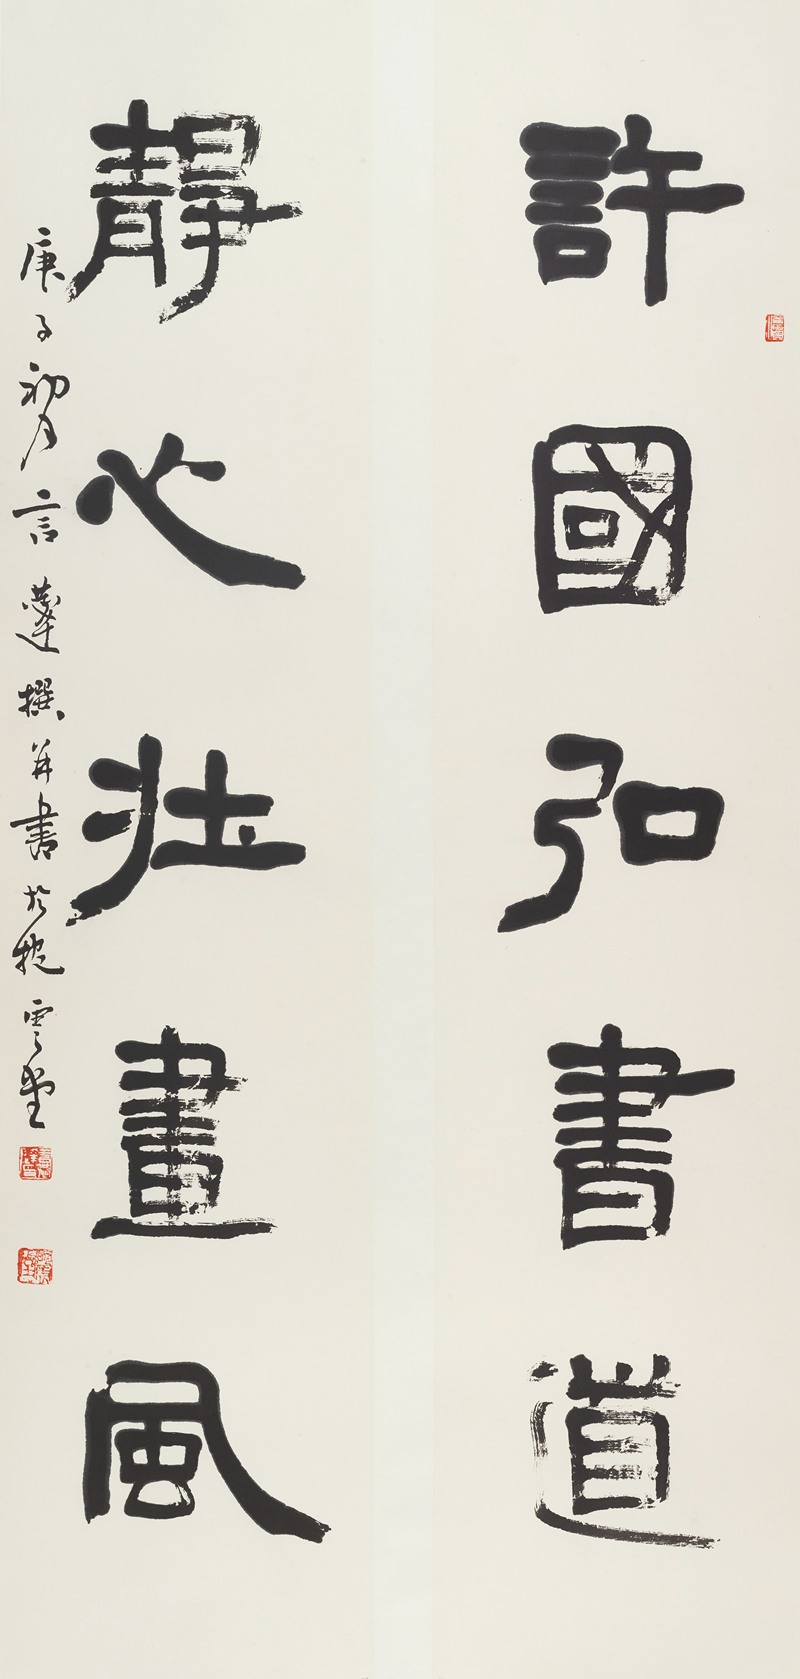 許國弘書道
靜心壯畫風
庚子初月言蓬撰并書於挹雲堂